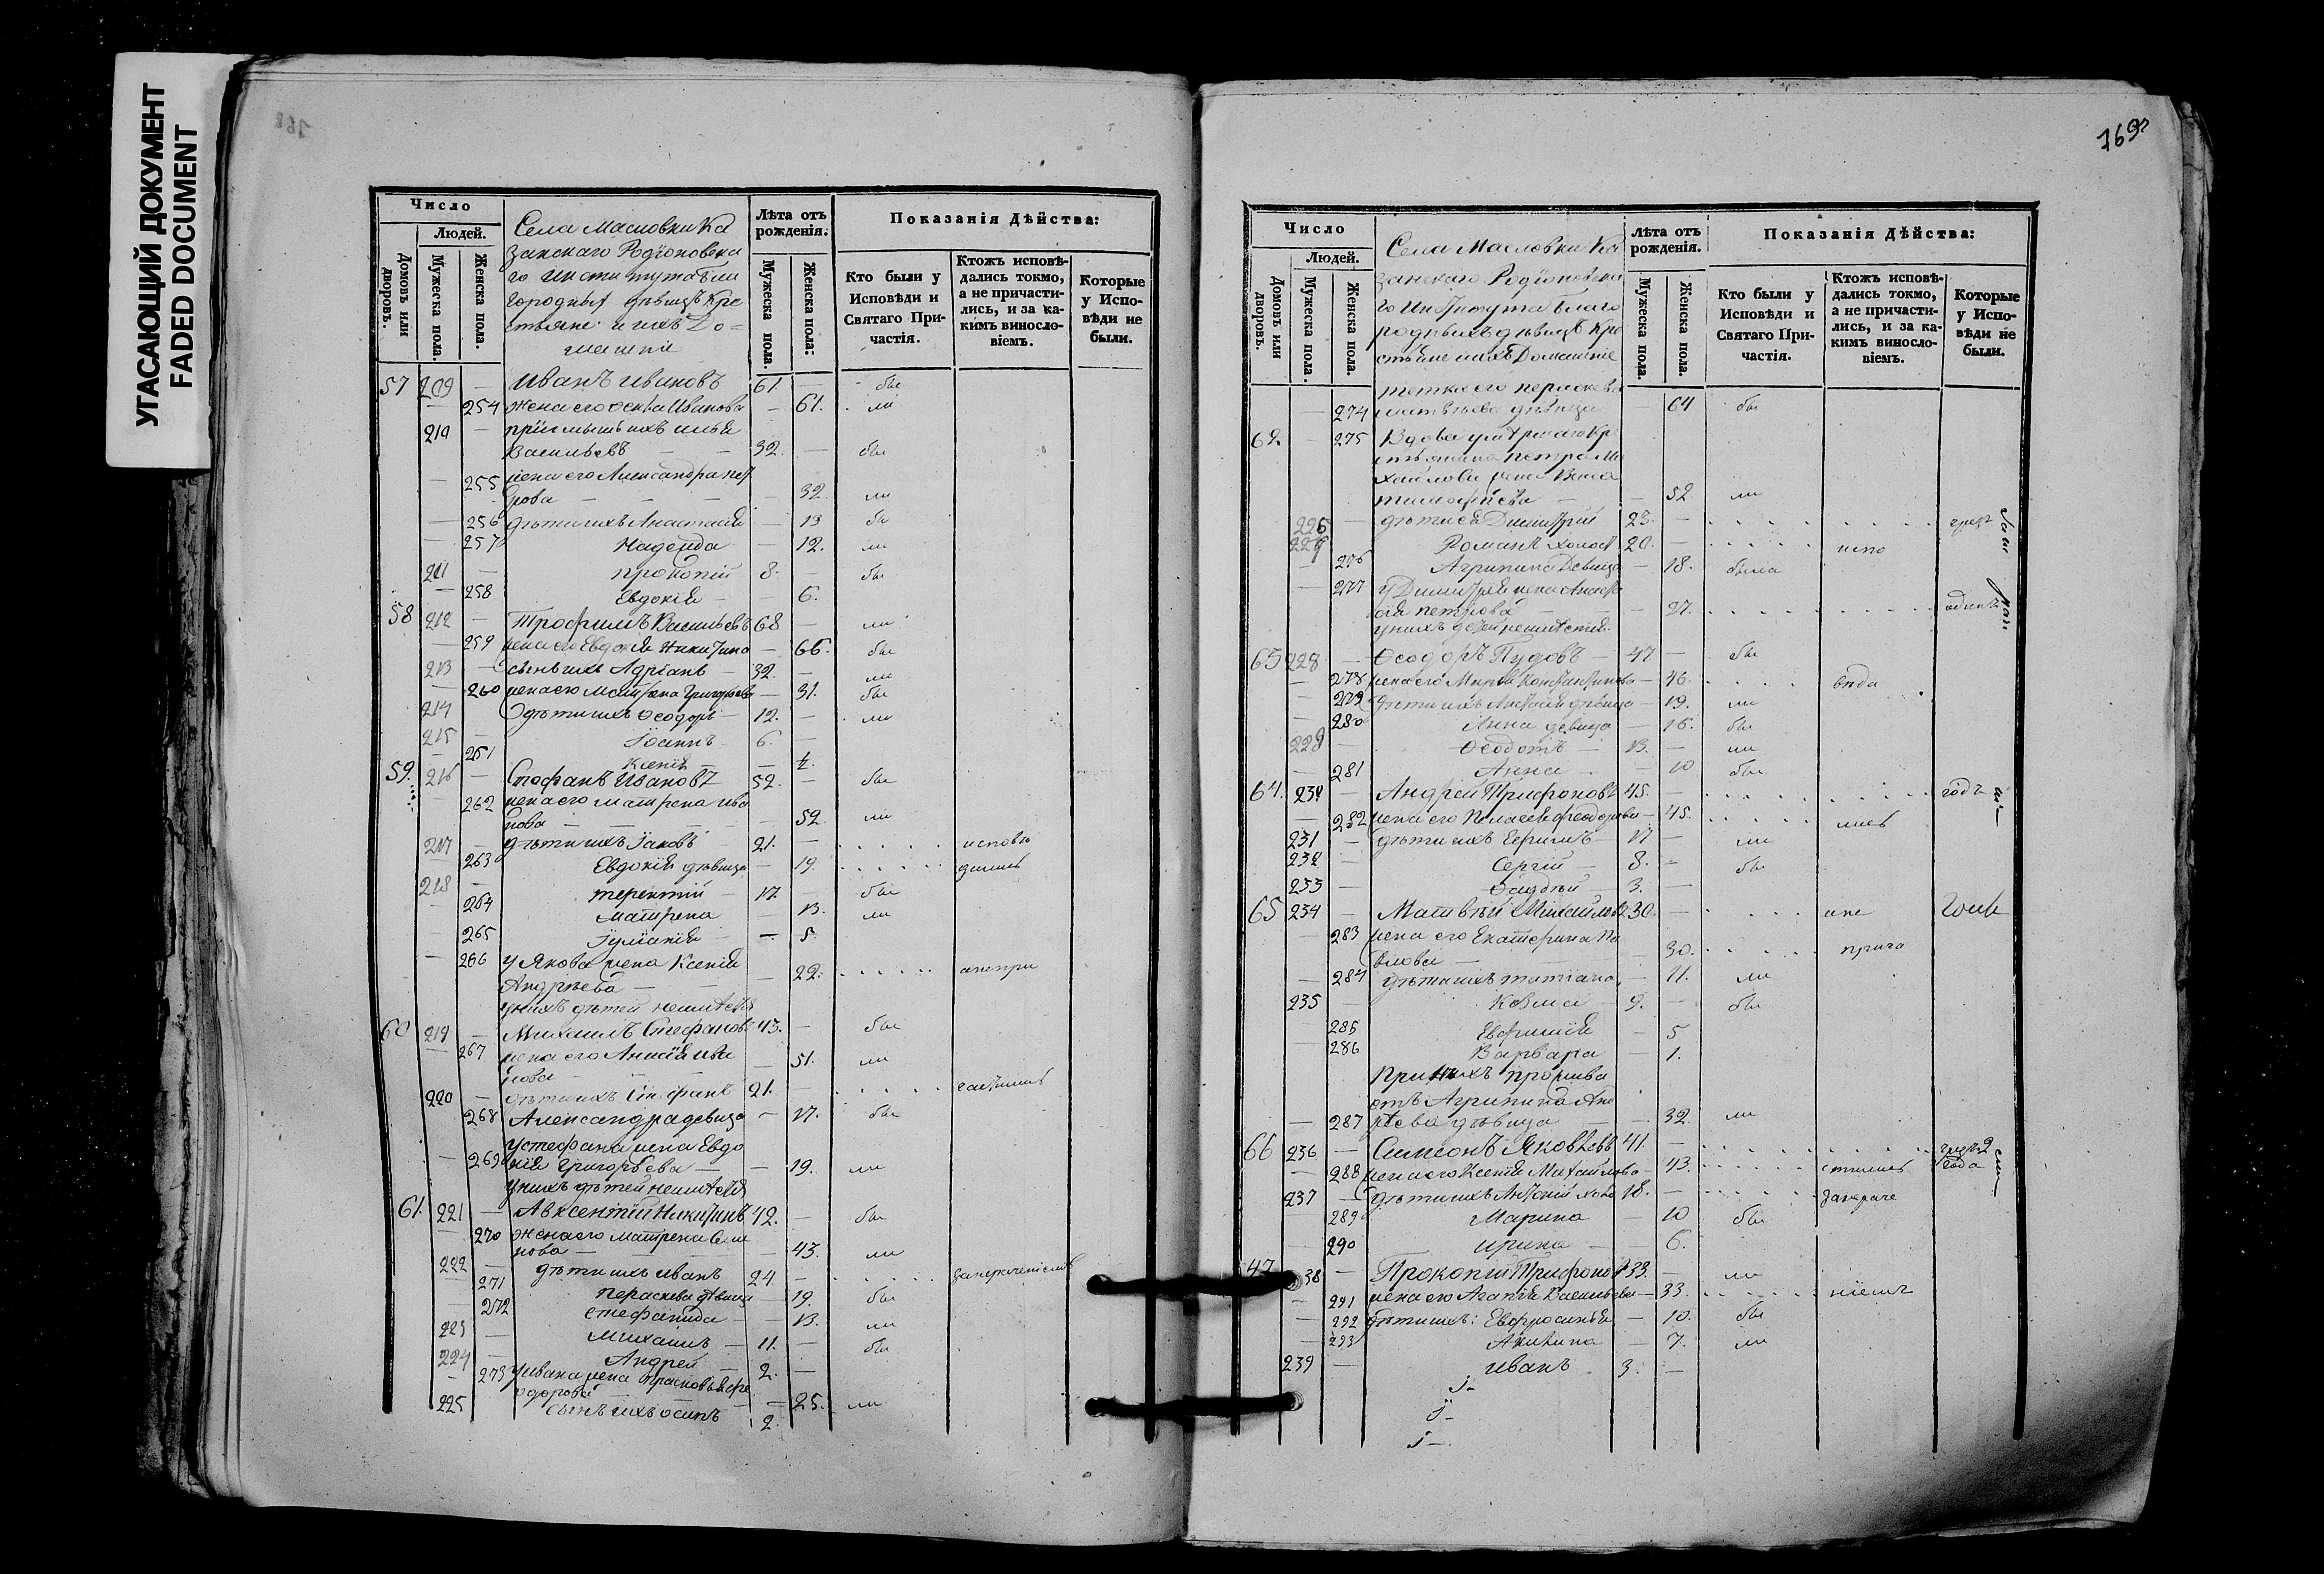 УГАСАЮЩИЙ ДОКУМЕНТ
FADED DOCUMENT
Число
Людей.
Домовъ или дворовъ.
Мужеска пола.
Женска пола.
Села Масловки Ка
занскаго Родіоновска
го Института бла
городныхъ дѣвицъ кре
стьяне и ихъ До=
машніе
Лѣта отъ рожденія.
Мужеска пола.
Женска пола:
Показанія Дѣйства:
Кто были у Исповѣди и Святаго Причастія.
Ктожъ исповѣдались токмо, а не причастились, и за какимъ винословіемъ.
Которые у Исповѣди не были.
57 209 — Иванъ Ивановъ 61. — бы
— 254 жена его Иванова — 61. ли
210 — ихъ Илья
Васильевъ — 32. — бы
— 255 жена его Александра Пет
рова — 32. ли
— 256 дѣти ихъ Анастасія — 13 бы
— 257 Надежда — 12. ли
211 — Прокопій 8. — бы
— 258 Евдокія — 6.
58 212 — Трофимъ Васильевъ 68 — ли
— 259 жена его Евдокія Никитина — 66. бы
213 — сынъ ихъ Адріанъ — 32. — ли
— 260 жена его Матрена Григорьева — 31. бы
214 дѣти ихъ Ѳеодоръ — 12. — ли
215 — Іоаннъ 6. —
— 261 Ксенія —
59. 216 — Стефанъ Ивановъ 52. — бы
— 262 жена его Матрена Ива
нова — 52 ли
217 — дѣти ихъ Іаковъ 21. — исповѣ
263 Евдокія дѣвица — 19. дались
218 — Терентій — 17. — бы
— 264 Матрена — 13. ли
— 265 Іуліанія — 5.
— 266 у Якова жена Ксенія
Андрѣева — 22: анепри
у нихъ дѣтей неимѣется
60 219 — Михаилъ Стефановъ 43. — бы
— 267 жена его Анисія Ива
нова — 51. ли
220 — дѣти ихъ Стефанъ 21. частились
268 Александра девица — 17. бы
у Стефана жена Евдо
— 269 кія Григорьева — 19. ли
у нихъ дѣтей неимѣется
61. 221 — Авксентій Никитинъ 42. — бы
270 жена его Матрена Семе
нова — 43. ли
222 — дѣти ихъ Иванъ 24. —
— 271 Пераскева дѣвица — 19. бы
— 272 Стефанида — 13. ли
223 — Михаилъ — 11. — бы
224 — Андрей — 2. —
— 273 у Ивана жена Прасковья Ѳе
одорова — 25. ли
225 сынъ ихъ Осипъ 2.
169
Число
Людей.
Домовъ или дворовъ.
Мужеска пола.
Женска пола.
Села Масловки Ка
занскаго Родіоновска
го Института благо
родныхъ дѣвицъ кре
стьяне и ихъ Домашніе
Лѣта отъ рожденія.
Мужеска пола.
Женска пола.
Показанія Дѣйства:
Кто были у Исповѣди и Святаго Причастія.
Ктожъ исповѣдались токмо, а не причастились, и за какимъ винословіемъ.
Которые у Исповѣди не были.
тетка его Пераскева
— 274 Матвѣева дѣвица — 64 бы
62. — 275 Вдова умершаго кр
естьянина Петра Ми
хайлова жена
Тимофѣева — 52. ли
226 — дѣти ея Димитрій 23. —
227 Романъ холост 20. — испо
— 276 Агрипина Девица — 18. была
— 277 у Димитрія жена Анаста
сія Петрова — 27. одинъ
у нихъ детей неимѣется
63 228 — Ѳеодоръ Пудовъ — 47 — бы
— 278 жена его Марѳа Константинова — 46. вѣда
— 279 дѣти ихъ дѣвица — 19. ли
— 280 Анна девица — 16. бы
229 — Ѳеодотъ — 13. — ли
— 281 Анна — 10 бы
64. 230 — Андрей Трифоновъ 45. — годъ
— 282 жена его Пелагея Феодорова — 45. лись
231 — дѣти ихъ Ефимъ — 17 — ли
232 — Сергій — 8. — бы
233 — 3. —
65 234 — Матвѣй Михайловъ 30. — ине
— 283 жена его Екатерина Па
влова — 30. прича
— 284 дѣти ихъ Татіана — 11. ли
235 — Козма — 9. — бы
— 285 Евфимія — 5
— 286 Варвара — 1.
При нихъ прожива
етъ Агрипина Анд
— 287 рѣева дѣвица — 32. ли
66 236 — Симеонъ Яковлевъ 41. — чрезъ 2
— 288 жена его Ксенія Михайлова — 43. стились года
237 — дѣти ихъ Антоній холо 18. —
— 289 Марина — 10 бы
— 290 Ирина — 6.
47 238 — Прокопій Трифоновъ 33. — ли
— 291 жена его Агапія Васильева — 33. ніемъ
— 292 дѣти ихъ: Евфросинія — 10. бы
— 293 Акилина — 7. ли
239 — Иванъ 3. —